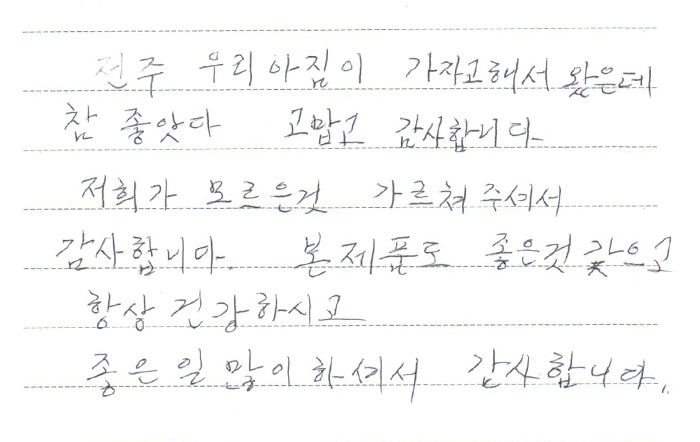 전주 우리아짐이 가자고해서 왔은데
참 좋앗다 고맙고 감사합니다
저희가 모르은것 가르쳐 주셔서
감사합니다. 본제품도 좋은것 같으고
항상 건강하시고
좋은일 많이 하셔서 감사합니다.